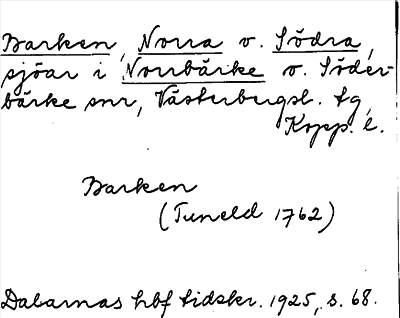 Barken, Norra o. Södra,
sjöar i Norrbärke o. Söder-
bärke snr, Västerbergsl. tg,
Kopp. l.
Barken
(Tuneld 1762)
Dalarnas hbf tidskr. 1925, s. 68.